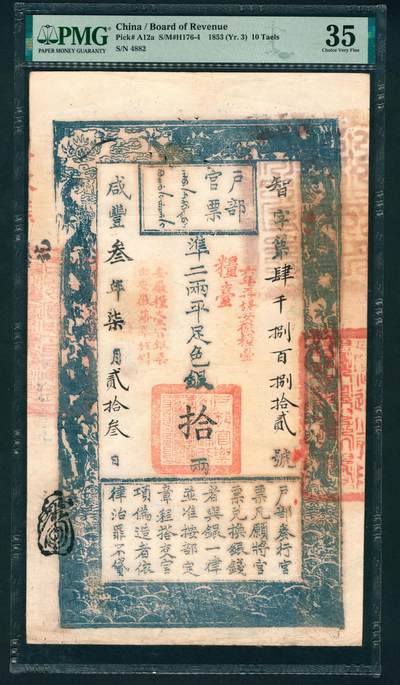 PMG
PAPER MONEY GUARANTY
China / Board of Revenue
Pick# A12a S/M#H176-4 1853 (Yr. 3) 10 Taels
S/N 4882
35
Choice Very Fine
戶部
官票
智字第肆千捌百捌拾貳號
準二兩平足色銀拾兩
咸豐叁年柒月貳拾叁日
糧臺
戶部奏行官
票凡願將官
票兌換銀錢
者與銀一律
並准按部定
章程搭交官
項偽造者依
律治罪不貸